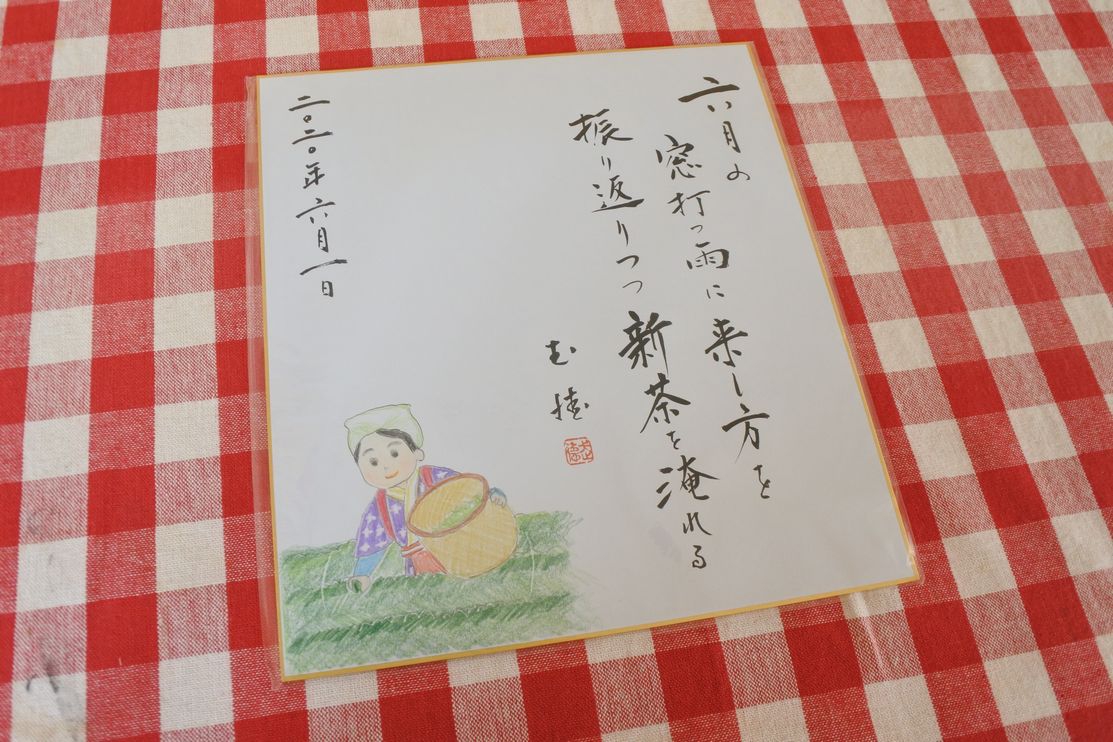 六月の
窓打つ雨に来し方を
振り返りつつ
新茶を淹れる
二〇二〇年六月一日